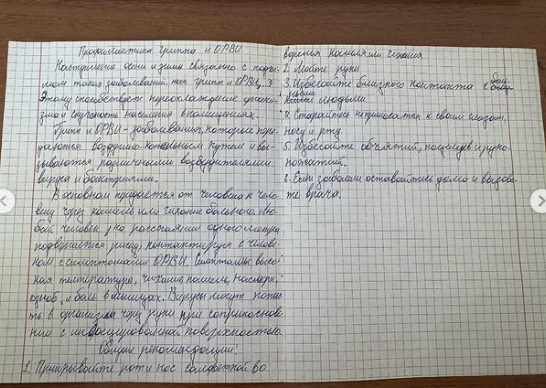 Профилактика гриппа и ОРВИ
Наступление осени и зимы связанно с подъ-
емом таких заболеваний, как грипп и ОРВИ.
Этому способствует переохлаждение органи-
зма и скученность населения в помещениях.
Грипп и ОРВИ - заболевания, которые пере-
даются воздушно-капельным путем и вы-
зываются различными возбудителями
вируса и бактериями.
В основном предается от человека к чело-
веку через кашель или чихание больного. Лю-
бой человек на расстоянии одного метра
подвергается риску, контактируя с челове-
ком с симптомами ОРВИ. Симптомы: высо-
кая температура, чихание, кашель, насморк,
озноб, и боль в мышцах. Вирусы могут попас-
ть в организм через руки при соприкоснове-
нии с инфицированной поверхностью.
Общие рекомендации:
1. Прикрывайте рот и нос салфеткой во
время кашля или чихания
2. Мойте руки
3. Избегайте близкого контакта с
людьми.
4. Старайтесь не прикасатся к своим глазам,
носу и рту.
5. Избегайте объятий, поцелуев и руко-
пожатий.
6. Если заболели оставайтесь дома и вызовай-
те врача.